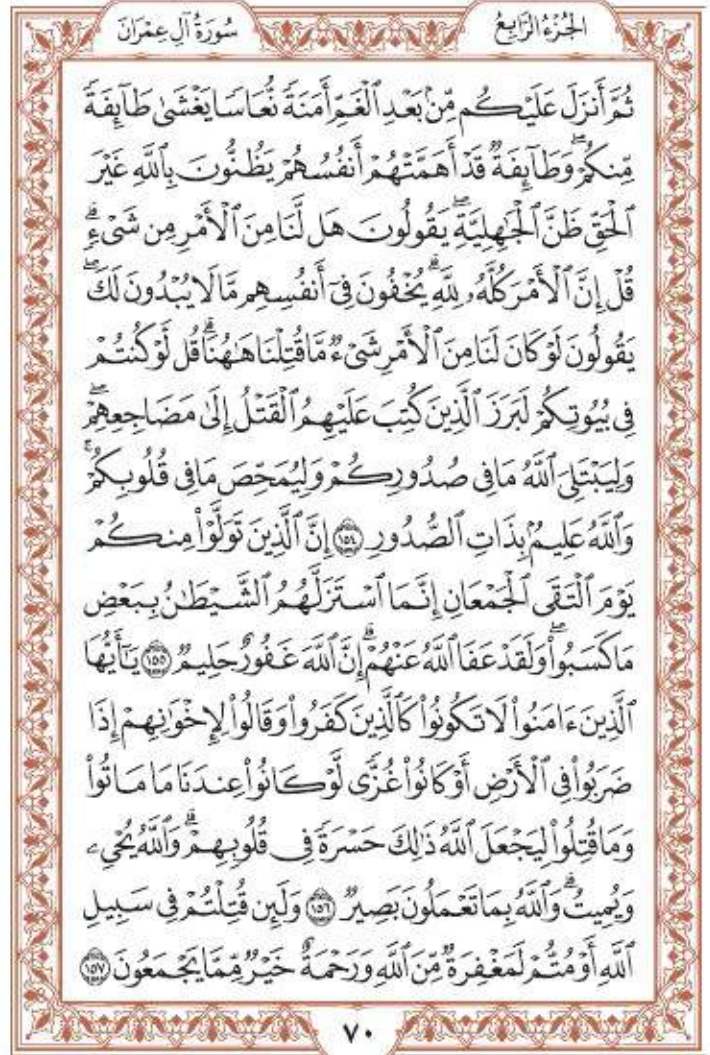 الجُزْءُ الرَّابِعُ
سُورَةُ آلِ عِمْرَانَ
ثُمَّ أَنزَلَ عَلَيْكُم مِّنۢ بَعْدِ ٱلْغَمِّ أَمَنَةً نُّعَاسًا يَغْشَىٰ طَآئِفَةً
مِّنكُمْۖ وَطَآئِفَةٌ قَدْ أَهَمَّتْهُمْ أَنفُسُهُمْ يَظُنُّونَ بِٱللَّهِ غَيْرَ
ٱلْحَقِّ ظَنَّ ٱلْجَٰهِلِيَّةِۖ يَقُولُونَ هَل لَّنَا مِنَ ٱلْأَمْرِ مِن شَىْءٍۗ
قُلْ إِنَّ ٱلْأَمْرَ كُلَّهُۥ لِلَّهِۗ يُخْفُونَ فِىٓ أَنفُسِهِم مَّا لَا يُبْدُونَ لَكَۖ
يَقُولُونَ لَوْ كَانَ لَنَا مِنَ ٱلْأَمْرِ شَىْءٌ مَّا قُتِلْنَا هَٰهُنَاۗ قُل لَّوْ كُنتُمْ
فِى بُيُوتِكُمْ لَبَرَزَ ٱلَّذِينَ كُتِبَ عَلَيْهِمُ ٱلْقَتْلُ إِلَىٰ مَضَاجِعِهِمْۖ
وَلِيَبْتَلِىَ ٱللَّهُ مَا فِى صُدُورِكُمْ وَلِيُمَحِّصَ مَا فِى قُلُوبِكُمْۚ
وَٱللَّهُ عَلِيمٌۢ بِذَاتِ ٱلصُّدُورِ ١٥٤ إِنَّ ٱلَّذِينَ تَوَلَّوْا۟ مِنكُمْ
يَوْمَ ٱلْتَقَى ٱلْجَمْعَانِ إِنَّمَا ٱسْتَزَلَّهُمُ ٱلشَّيْطَٰنُ بِبَعْضِ
مَا كَسَبُوا۟ۖ وَلَقَدْ عَفَا ٱللَّهُ عَنْهُمْۗ إِنَّ ٱللَّهَ غَفُورٌ حَلِيمٌ ١٥٥ يَٰٓأَيُّهَا
ٱلَّذِينَ ءَامَنُوا۟ لَا تَكُونُوا۟ كَٱلَّذِينَ كَفَرُوا۟ وَقَالُوا۟ لِإِخْوَٰنِهِمْ إِذَا
ضَرَبُوا۟ فِى ٱلْأَرْضِ أَوْ كَانُوا۟ غُزًّى لَّوْ كَانُوا۟ عِندَنَا مَا مَاتُوا۟
وَمَا قُتِلُوا۟ لِيَجْعَلَ ٱللَّهُ ذَٰلِكَ حَسْرَةً فِى قُلُوبِهِمْۗ وَٱللَّهُ يُحْىِۦ
وَيُمِيتُۗ وَٱللَّهُ بِمَا تَعْمَلُونَ بَصِيرٌ ١٥٦ وَلَئِن قُتِلْتُمْ فِى سَبِيلِ
ٱللَّهِ أَوْ مُتُّمْ لَمَغْفِرَةٌ مِّنَ ٱللَّهِ وَرَحْمَةٌ خَيْرٌ مِّمَّا يَجْمَعُونَ ١٥٧
٧٠